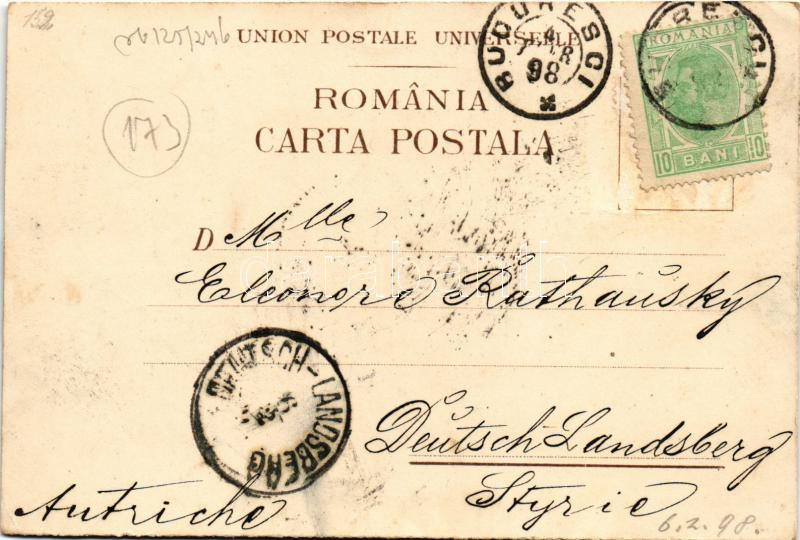 152
UNION POSTALE UNIVERSELLE
BUCURESCI
98
ROMANIA
10 BANI 10
173
ROMÂNIA
CARTA POSTALA
D Mlle
Eleonore Rathausky
darabanth
DEUTSCH-LANDSBERG
Deutsch Landsberg
Autriche
Styrie
6.2.98.